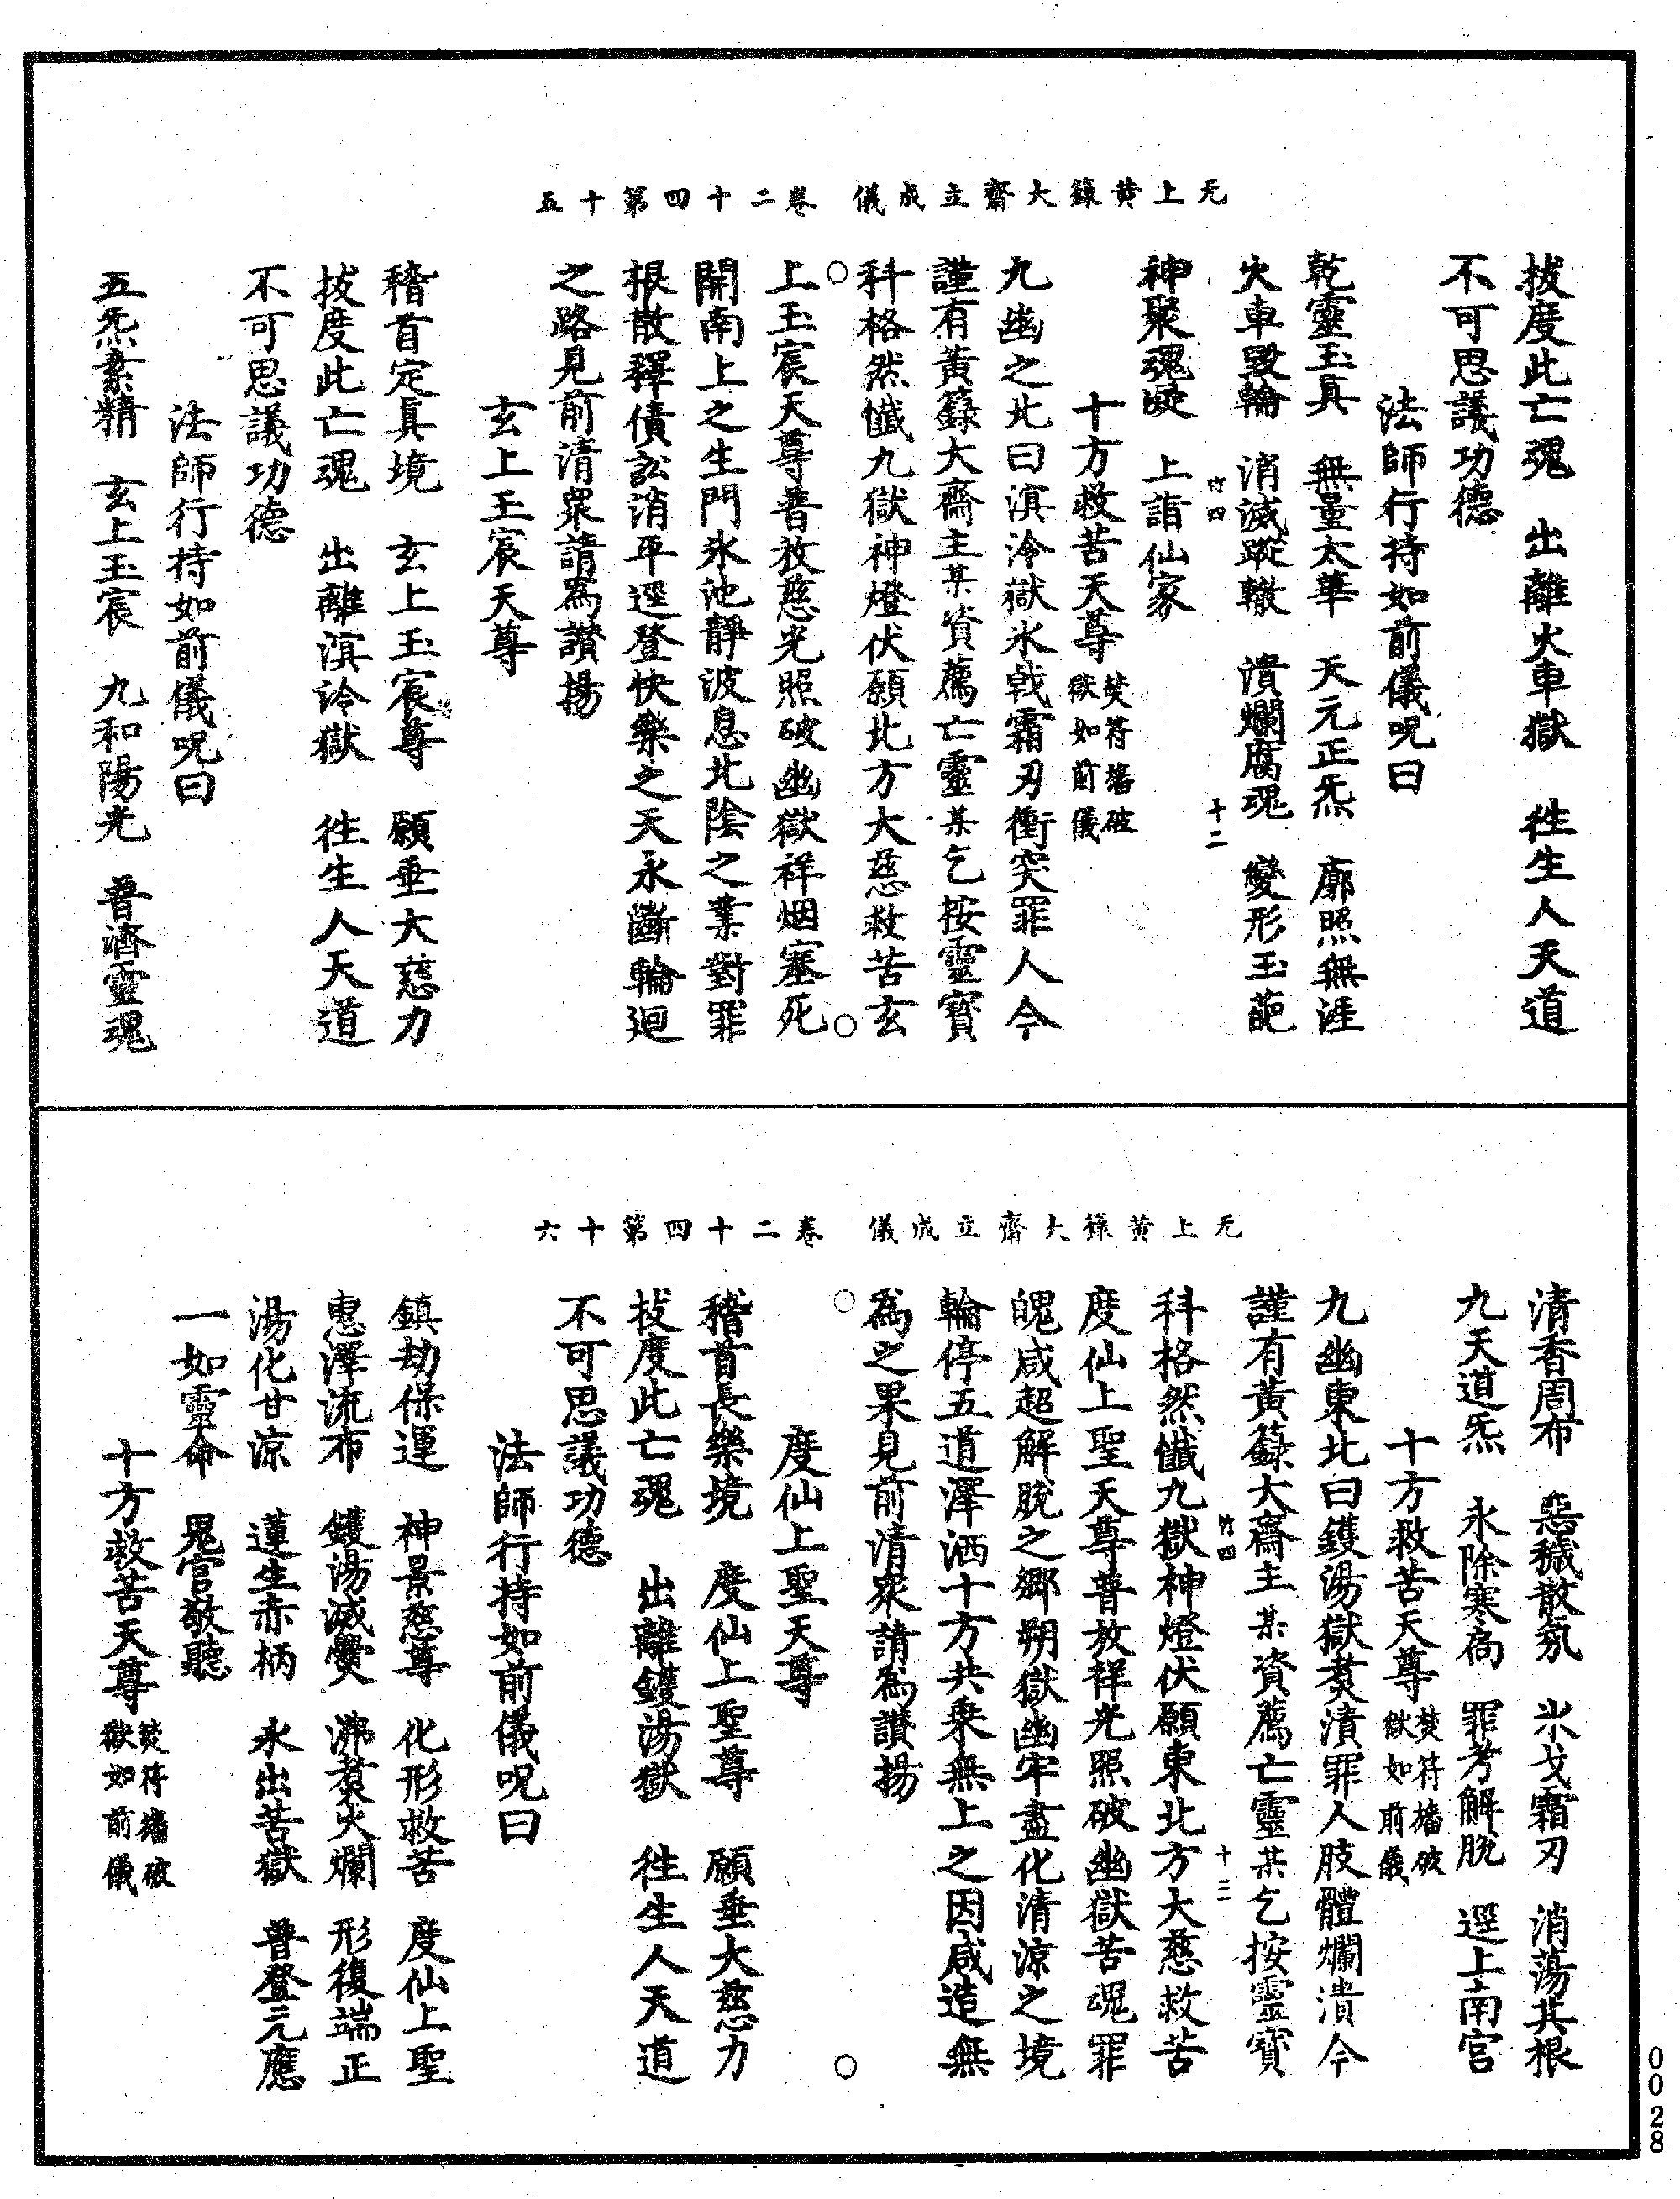 无上黃籙大齋立成儀　卷二十四第十五
拔度此亡魂　出離火車獄　徃生人天道
不可思議功德
法師行持如前儀呪曰
乾靈玉真　無量太華　天元正炁　廓照無涯
火車毀輪　消滅蹤轍　潰爛腐魂　變形玉葩
竹四　十二
神聚魂凝　上詣仙家
十方救苦天尊焚符旛破獄如前儀
九幽之北曰溟泠獄氷戟霜刃衝突罪人今
謹有黃籙大齋主某資薦亡靈某乞按靈寶
科格然懺九獄神燈伏願北方大慈救苦玄
上玉宸天尊普放慈光照破幽獄祥烟塞死
開南上之生門氷池靜波息北陰之業對罪
根散釋債訟消平逕登快樂之天永斷輪迴
之路見前清衆請爲讃揚
玄上玉宸天尊
稽首定真境　玄上玉宸尊　願垂大慈力
拔度此亡魂　出離溟泠獄　徃生人天道
不可思議功德
法師行持如前儀呪曰
五炁素精　玄上玉宸　九和陽光　普濟靈魂
无上黃籙大齋立成儀　卷二十四第十六
清香周布　惡穢散氛　氷戈霜刃　消蕩其根
九天道炁　永除寒　罪考解脫　逕上南宫
十方救苦天尊焚符旛破獄如前儀
九幽東北曰鑊湯獄煑漬罪人肢體爛潰今
謹有黃籙大齋主某資薦亡靈某乞按靈寶
竹四　十三
科格然懺九獄神燈伏願東北方大慈救苦
度仙上聖天尊普放祥光照破幽獄苦魂罪
魄咸超解脫之鄉朔獄幽牢盡化清涼之境
輪停五道澤洒十方共乗無上之因咸造無
爲之果見前清衆請爲讃揚
度仙上聖天尊
稽首長樂境　度仙上聖尊　願垂大慈力
拔度此亡魂　出離鑊湯獄　徃生人天道
不可思議功德
法師行持如前儀呪曰
鎮劫保運　神景慈尊　化形救苦　度仙上聖
惠澤流布　鑊湯滅爨　沸煑火爛　形復端正
湯化甘涼　蓮生赤柄　永出苦獄　普登元應
一如靈命　鬼官敬聽
十方救苦天尊焚符旛破獄如前儀
0028